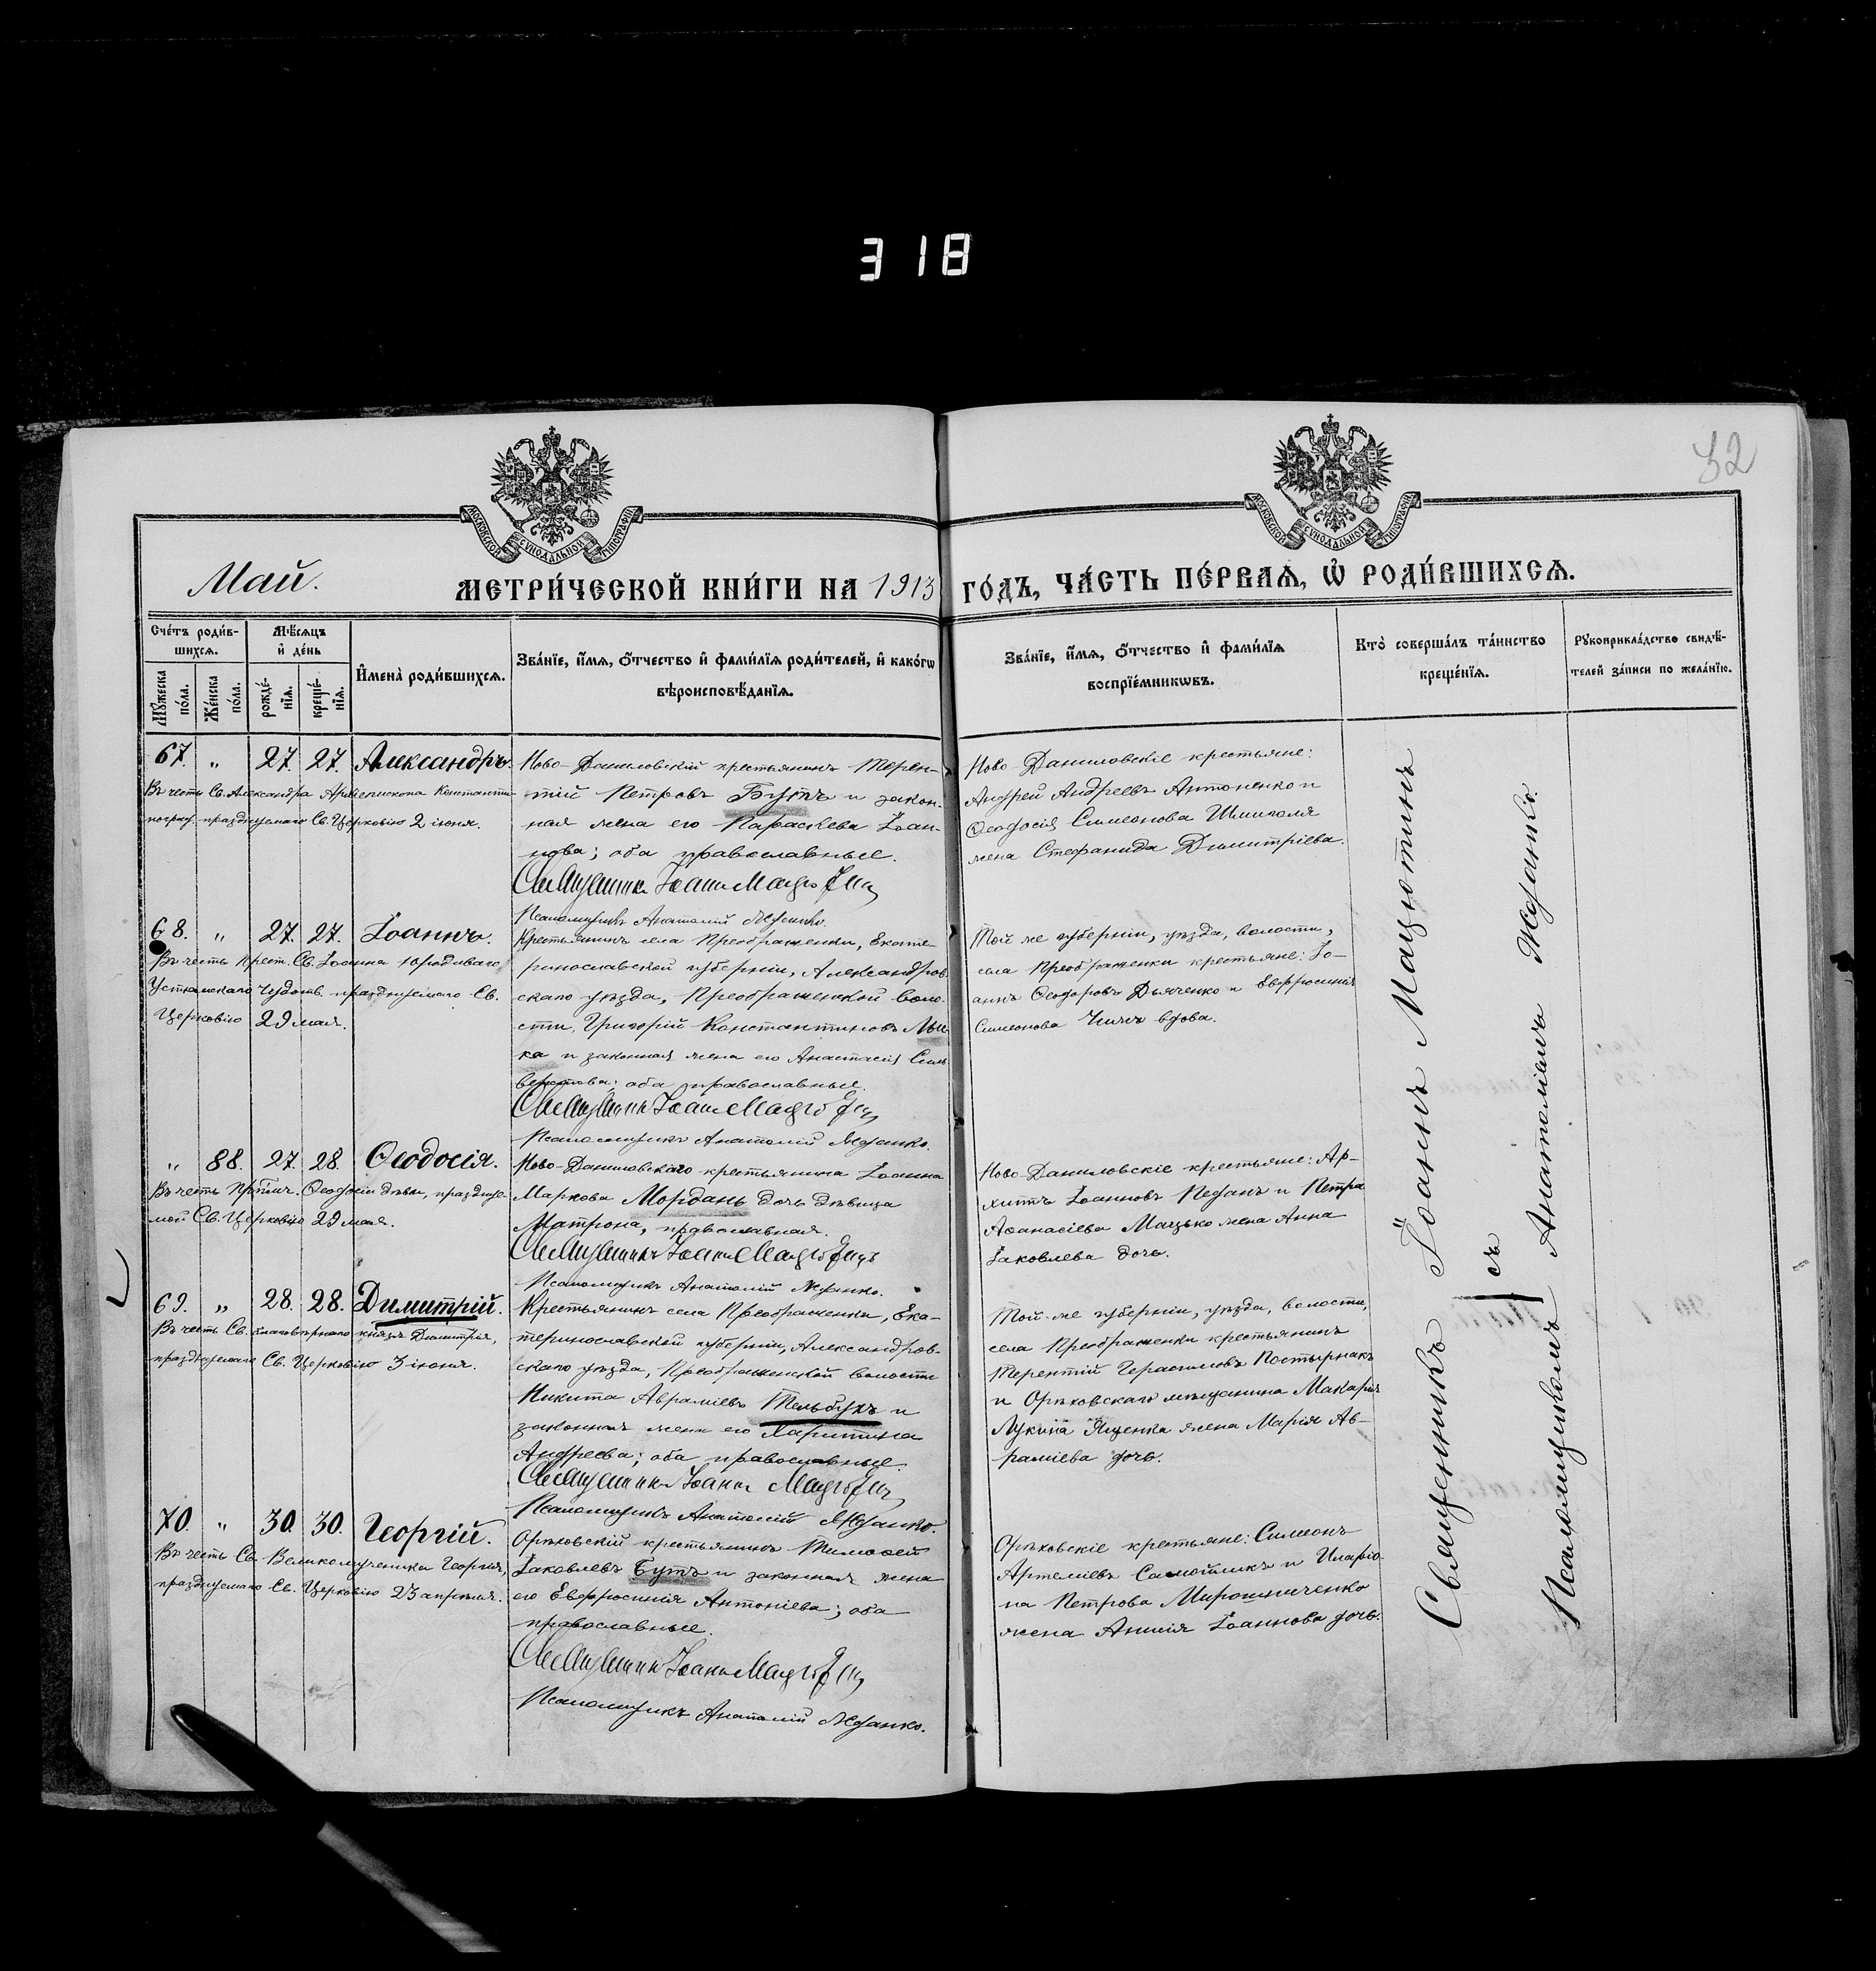 318
32
МОСКОВСКОЙ СѴНОДАЛЬНОЙ ТИПОГРАФІИ
МОСКОВСКОЙ СѴНОДАЛЬНОЙ ТИПОГРАФІИ
Май.
МЕТРИ́ЧЕСКОЙ КНИ́ГИ НА 1913 ГО́ДЪ, ЧА́СТЬ ПЕ́РВАѦ, Ѡ҆ РОДИ́ВШИХСѦ.
Сче́тъ роди́в-
шихсѧ.
Мꙋ́жеска по́ла.
Же́нска по́ла.
Мѣ́сѧцъ
и҆ де́нь
рожде́-
нїѧ.
креще́-
нїѧ.
И҆мена̀ роди́вшихсѧ.
Зва́нїе, и҆́мѧ, ѻ҆́тчество и҆ фами́лїѧ роди́телей, и҆ како́гѡ
вѣроисповѣ́данїѧ.
Зва́нїе, и҆́мѧ, ѻ҆́тчество и҆ фами́лїѧ
воспрїе́мникѡвъ.
Кто̀ соверша́лъ та́инство
креще́нїѧ.
Рꙋкоприкла́дство свидѣ́-
телей за́писи по жела́нїю.
67. " 27. 27. Александръ.
Въ честь Св. Александра Архіепископа Константи-
ноград. празднуемаго Св. Церковію 2 іюня.
Ново-Даниловскій крестьянинъ Терен-
тій Петровъ Бутъ и закон-
ная жена его Параскева Іоан-
нова; оба православные.
Священникъ Іоаннъ Мацютинъ
Псаломщикъ Анатолій Жданко.
Ново-Даниловскіе крестьяне:
Андрей Андреевъ Антоненко и
Ѳеодосія Симеонова Шмиголя
жена Стефанида Димитріева.
68. " 27. 27. Іоаннъ.
Въ честь Св. Іоанна Юродиваго,
Устюжскаго Чудотв. празднуемаго Св.
Церковію 29 мая.
Крестьянинъ села Преображенки, Екате-
ринославской губерніи, Александров-
скаго уѣзда, Преображенской воло-
сти, Григорій Константиновъ
ка и законная жена его Анастасія Силь
верстова; оба православные.
Священникъ Іоаннъ Мацютинъ
Псаломщикъ Анатолій Жданко.
Той же губерніи, уѣзда, волости,
села Преображенки крестьяне: Іо-
аннъ Ѳеодоровъ Дьяченко и Евфросинія
Симеонова вдова.
" 88. 27. 28. Ѳеодосія.
Въ честь Ѳеодосіи дѣвы, празднуе-
мой Св. Церковію 29 мая.
Ново-Даниловскаго крестьянина Іоанна
Маркова Мордань дочь дѣвица
Матрона, православная.
Священникъ Іоаннъ Мацютинъ
Псаломщикъ Анатолій Жданко.
Ново-Даниловскіе крестьяне: Ар-
хипъ Іоанновъ и Петра
Аѳанасіева Мацько жена Анна
Іаковлева дочь.
69. " 28. 28. Димитрій.
Въ честь Св. благовѣрнаго князя Димитрія,
празднуемаго Св. Церковію 3 іюня.
Крестьянинъ села Преображенки, Ека-
теринославской губерніи, Александров-
скаго уѣзда, Преображенской волости
Никита Авраміевъ Тельбухъ и
законная жена его Харитина
Андреева; оба православные.
Священникъ Іоаннъ Мацютинъ
Псаломщикъ Анатолій Жданко.
Той-же губерніи, уѣзда, волости,
села Преображенки крестьянинъ
Терентій Герасимовъ Костырнакъ
и Орѣховскаго мѣщанина Макарія
Лукина Яценка жена Марія Ав-
раміева дочь.
70. " 30. 30. Георгій.
Въ честь Св. Великомученика Георгія,
празднуемаго Св. Церковію 23 апрѣля.
Орѣховскій крестьянинъ Тимоѳей
Іаковлевъ Бутъ и законная жена
его Евфросинія Антоніева; оба
православные.
Священникъ Іоаннъ Мацютинъ
Псаломщикъ Анатолій Жданко.
Орѣховскіе крестьяне: Симеонъ
Артеміевъ Самойликъ и Иларіо-
на Петрова Мирошниченко
жена Анисія Іоаннова дочь.
Священникъ Іоаннъ Мацютинъ
съ
Псаломщикомъ Анатоліемъ Жданко.